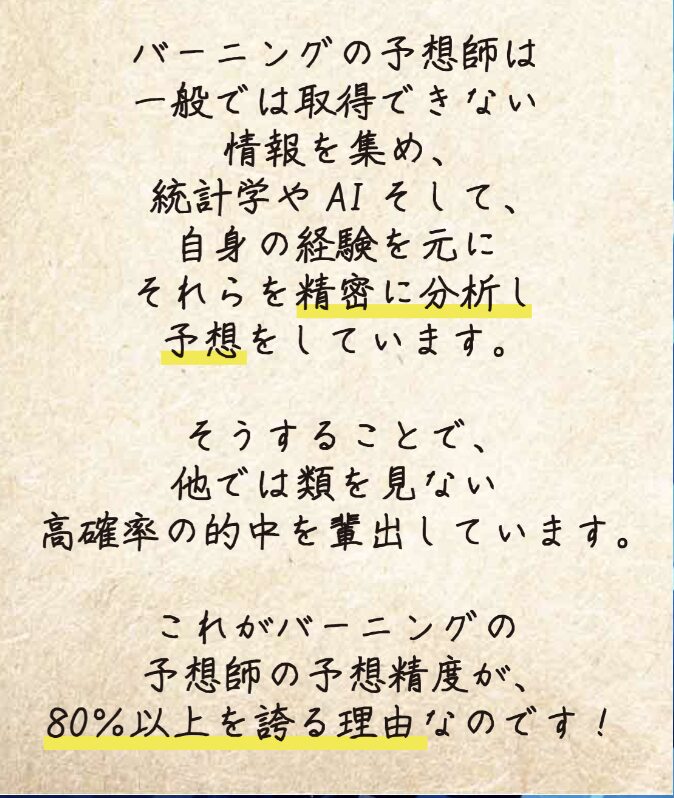 バーニングの予想師は
一般では取得できない
情報を集め、
統計学や AI そして、
自身の経験を元に
それらを精密に分析し
予想をしています。
そうすることで、
他では類を見ない
高確率の的中を輩出しています。
これがバーニングの
予想師の予想精度が、
80%以上を誇る理由なのです！